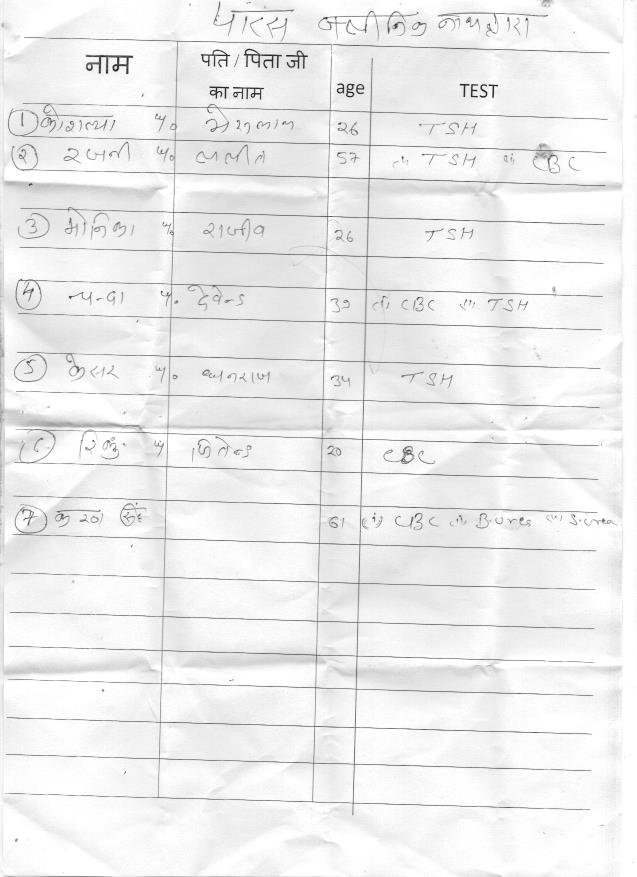 पारस क्लीनिक नाथद्वारा
नाम पति / पिता जी का नाम age TEST
① कोशल्या w/o भेरूलाल 26 TSH
② रजनी w/o ललीत 57 (i) TSH (ii) CBC
③ मोनिका w/o राजीव 26 TSH
④ w/o देवेन्द्र 39 (i) CBC (ii) TSH
⑤ केसर w/o धनराज 34 TSH
⑥ रिंकु w/o जितेन्द्र 20 CBC
⑦ सिंह 61 (i) CBC (ii) B.urea (iii)